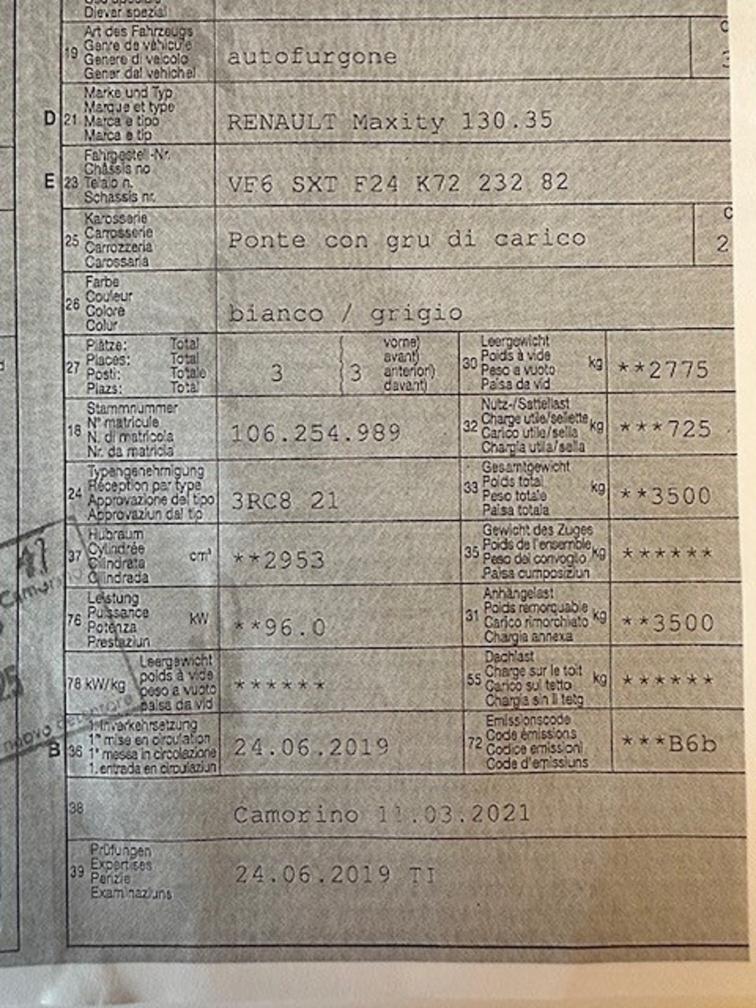 Diever spezial
19 Art des Fahrzeugs
Genre de véhicule
Genere di veicolo
Gener dal vehichel
autofurgone
D 21 Marke und Typ
Marque et type
Marca e tipo
Marca e tip
RENAULT Maxity 130.35
E 23 Fahrgestell-Nr.
Châssis no
Telaio n.
Schassis nr.
VF6 SXT F24 K72 232 82
25 Karosserie
Carrosserie
Carrozzeria
Carossaria
Ponte con gru di carico
2
26 Farbe
Couleur
Colore
Colur
bianco / grigio
27 Plätze: Total
Places: Total
Posti: Totale
Plazs: Total
3
3
vorne)
avant)
anteriori)
davant)
30 Leergewicht
Poids à vide
Peso a vuoto
Paisa da vid
kg
**2775
18 Stammnummer
N° matricule
N. di matricola
Nr. da matricla
106.254.989
32 Nutz-/Sattellast
Charge utile/sellette
Carico utile/sella
Chargia utila/sella
kg
***725
24 Typengenehmigung
Réception par type
Approvazione del tipo
Approvaziun dal tip
3RC8 21
33 Gesamtgewicht
Poids total
Peso totale
Paisa totala
kg
**3500
37 Hubraum
Cylindrée
Cilindrata
Cilindrada
cm³
**2953
35 Gewicht des Zuges
Poids de l'ensemble
Peso del convoglio
Paisa cumposiziun
kg
******
76 Leistung
Puissance
Potenza
Prestaziun
kW
**96.0
31 Anhängelast
Poids remorquable
Carico rimorchiato
Chargia annexa
kg
**3500
78 kW/kg
Leergewicht
poids à vide
peso a vuoto
paisa da vid
******
55 Dachlast
Charge sur le toit
Carico sul tetto
Chargia sin il tetg
kg
******
B 36 1. Inverkehrsetzung
1re mise en circulation
1a messa in circolazione
1. entrada en circulaziun
24.06.2019
72 Emissionscode
Code émissions
Codice emissioni
Code d'emissiuns
***B6b
38
Camorino 11.03.2021
39 Prüfungen
Expertises
Perizie
Examinaziuns
24.06.2019 TI
nuovo detentore